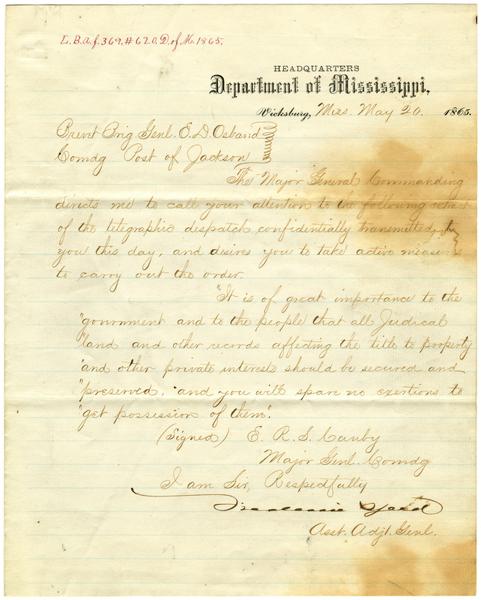 L.B.a.f. 369. # 620. D. of M. 1865.
HEADQUARTERS
Department of Mississippi,
Vicksburg, Miss. May 20. 1865.
Brevt Brig Genl. E. D. Osband
Comdg Post of Jackson
The Major General Commanding
directs me to call your attention to the following
of the telegraphic dispatch confidentially transmitted
you this day, and desires you to take active
to carry out the order.
"It is of great importance to the
"government and to the people that all Judical
"land and other records affecting the title to property
"and other private interests should be secured and
"preserved, and you will spare no exertions to
"get possession of them".
(Signed) E. R. S. Canby
Major Genl. Comdg
I am Sir, Respectfully
Asst. Adjt. Genl.